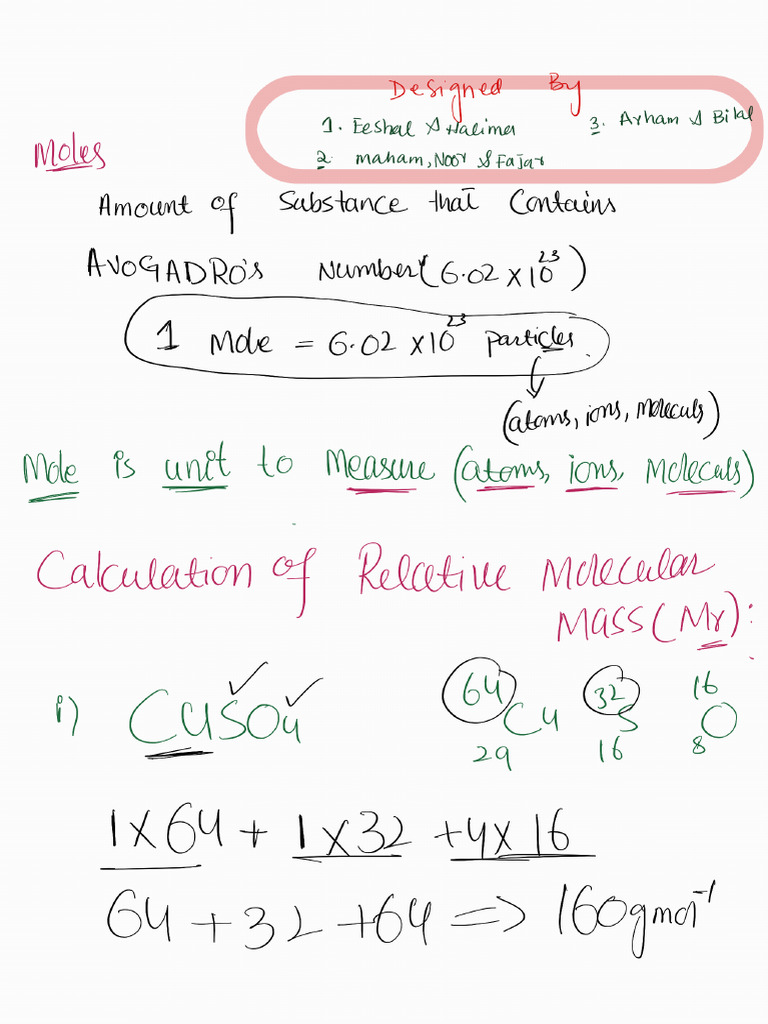 Designed By
1. Eeshal & Halima 3. Arham & Bilal
2. maham, Noor & Fajar
Moles
Amount of Substance that Contains
AVOGADRO's Number (6.02 x 10²³)
1 Mole = 6.02 x 10²³ particles
(atoms, ions, molecules)
Mole is unit to Measure (atoms, ions, Molecules)
Calculation of Relative Molecular
MASS (Mr):
i) CuSO₄ 64 Cu 29 32 S 16 16 O 8
1 x 64 + 1 x 32 + 4 x 16
64 + 32 + 64 => 160 g mol⁻¹